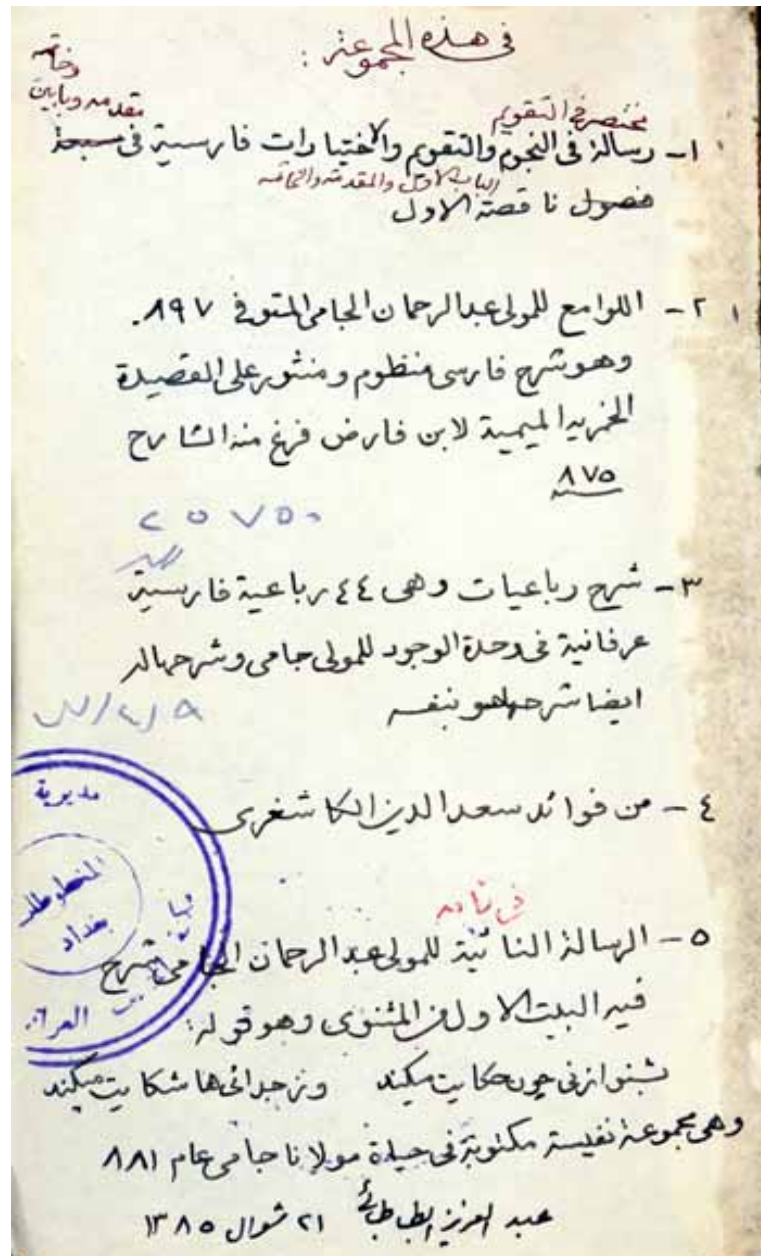 في هذه المجموعة :
وخاتمة
مقدمه وبابين
مختصر في التقويم
١- رسالة في النجوم والتقويم والاختيارات فارسية في سبعة
الباب الاول والمقدمة والخاتمه
فصول ناقصة الاول
٢- اللوامع للمولى عبدالرحمان الجامي المتوفى ٨٩٧.
وهو شرح فارسي منظوم ومنثور على القصيدة
الخمرية الميمية لابن فارض فرغ منه الشارح
سنه ٨٧٥
٢٥٧٥٠
٣- شرح رباعيات وهي ٤٤ رباعية فارسية
عرفانية في وحدة الوجود للمولى جامي وشرحها له
ايضا شرحها هو بنفسه
٤- من فوائد سعد الدين الكاشغري
مديرية
المخطوطات
بغداد
العراق
٥- الرسالة النائية للمولى عبدالرحمان الجامي شرح
فيه البيت الاول من المثنوي وهو قوله:
بشنو از ني چون حكايت ميكند وز جدائي ها شكايت ميكند
وهي مجموعة نفيسة مكتوبة في حياة مولانا جامي عام ٨٨١
عبد العزيز الطباطبائي ٢١ شوال ١٣٨٥